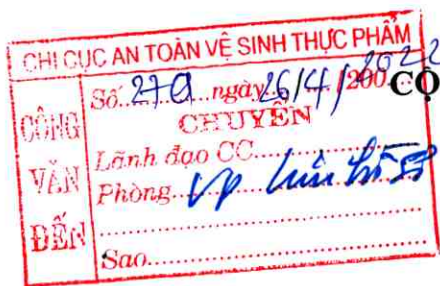 CHI CỤC AN TOÀN VỆ SINH THỰC PHẨM
CÔNG VĂN ĐẾN
Số: 279 ngày 26/4/2022 /200
CHUYỂN
Lãnh đạo CC
Phòng Vp lưu hồ sơ
Sao
CỘ